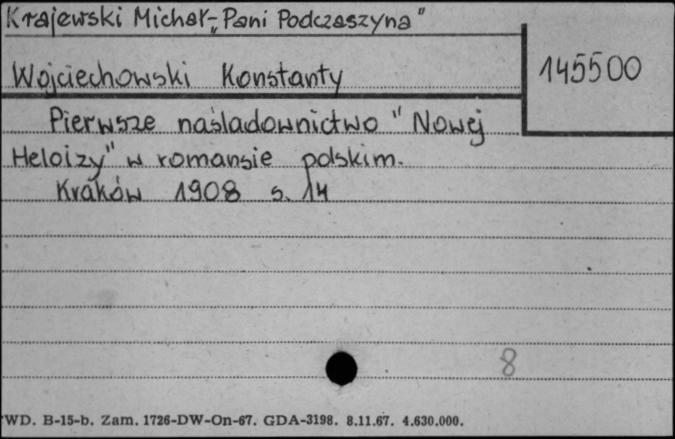 Krajewski Michał-„Pani Podczaszyna"
Wojciechowski Konstanty
145500
Pierwsze naśladownictwo "Nowej
Heloizy" w romansie polskim.
Kraków 1908 s. 14
8
WD. B-15-b. Zam. 1726-DW-On-67. GDA-3198. 8.11.67. 4.630.000.